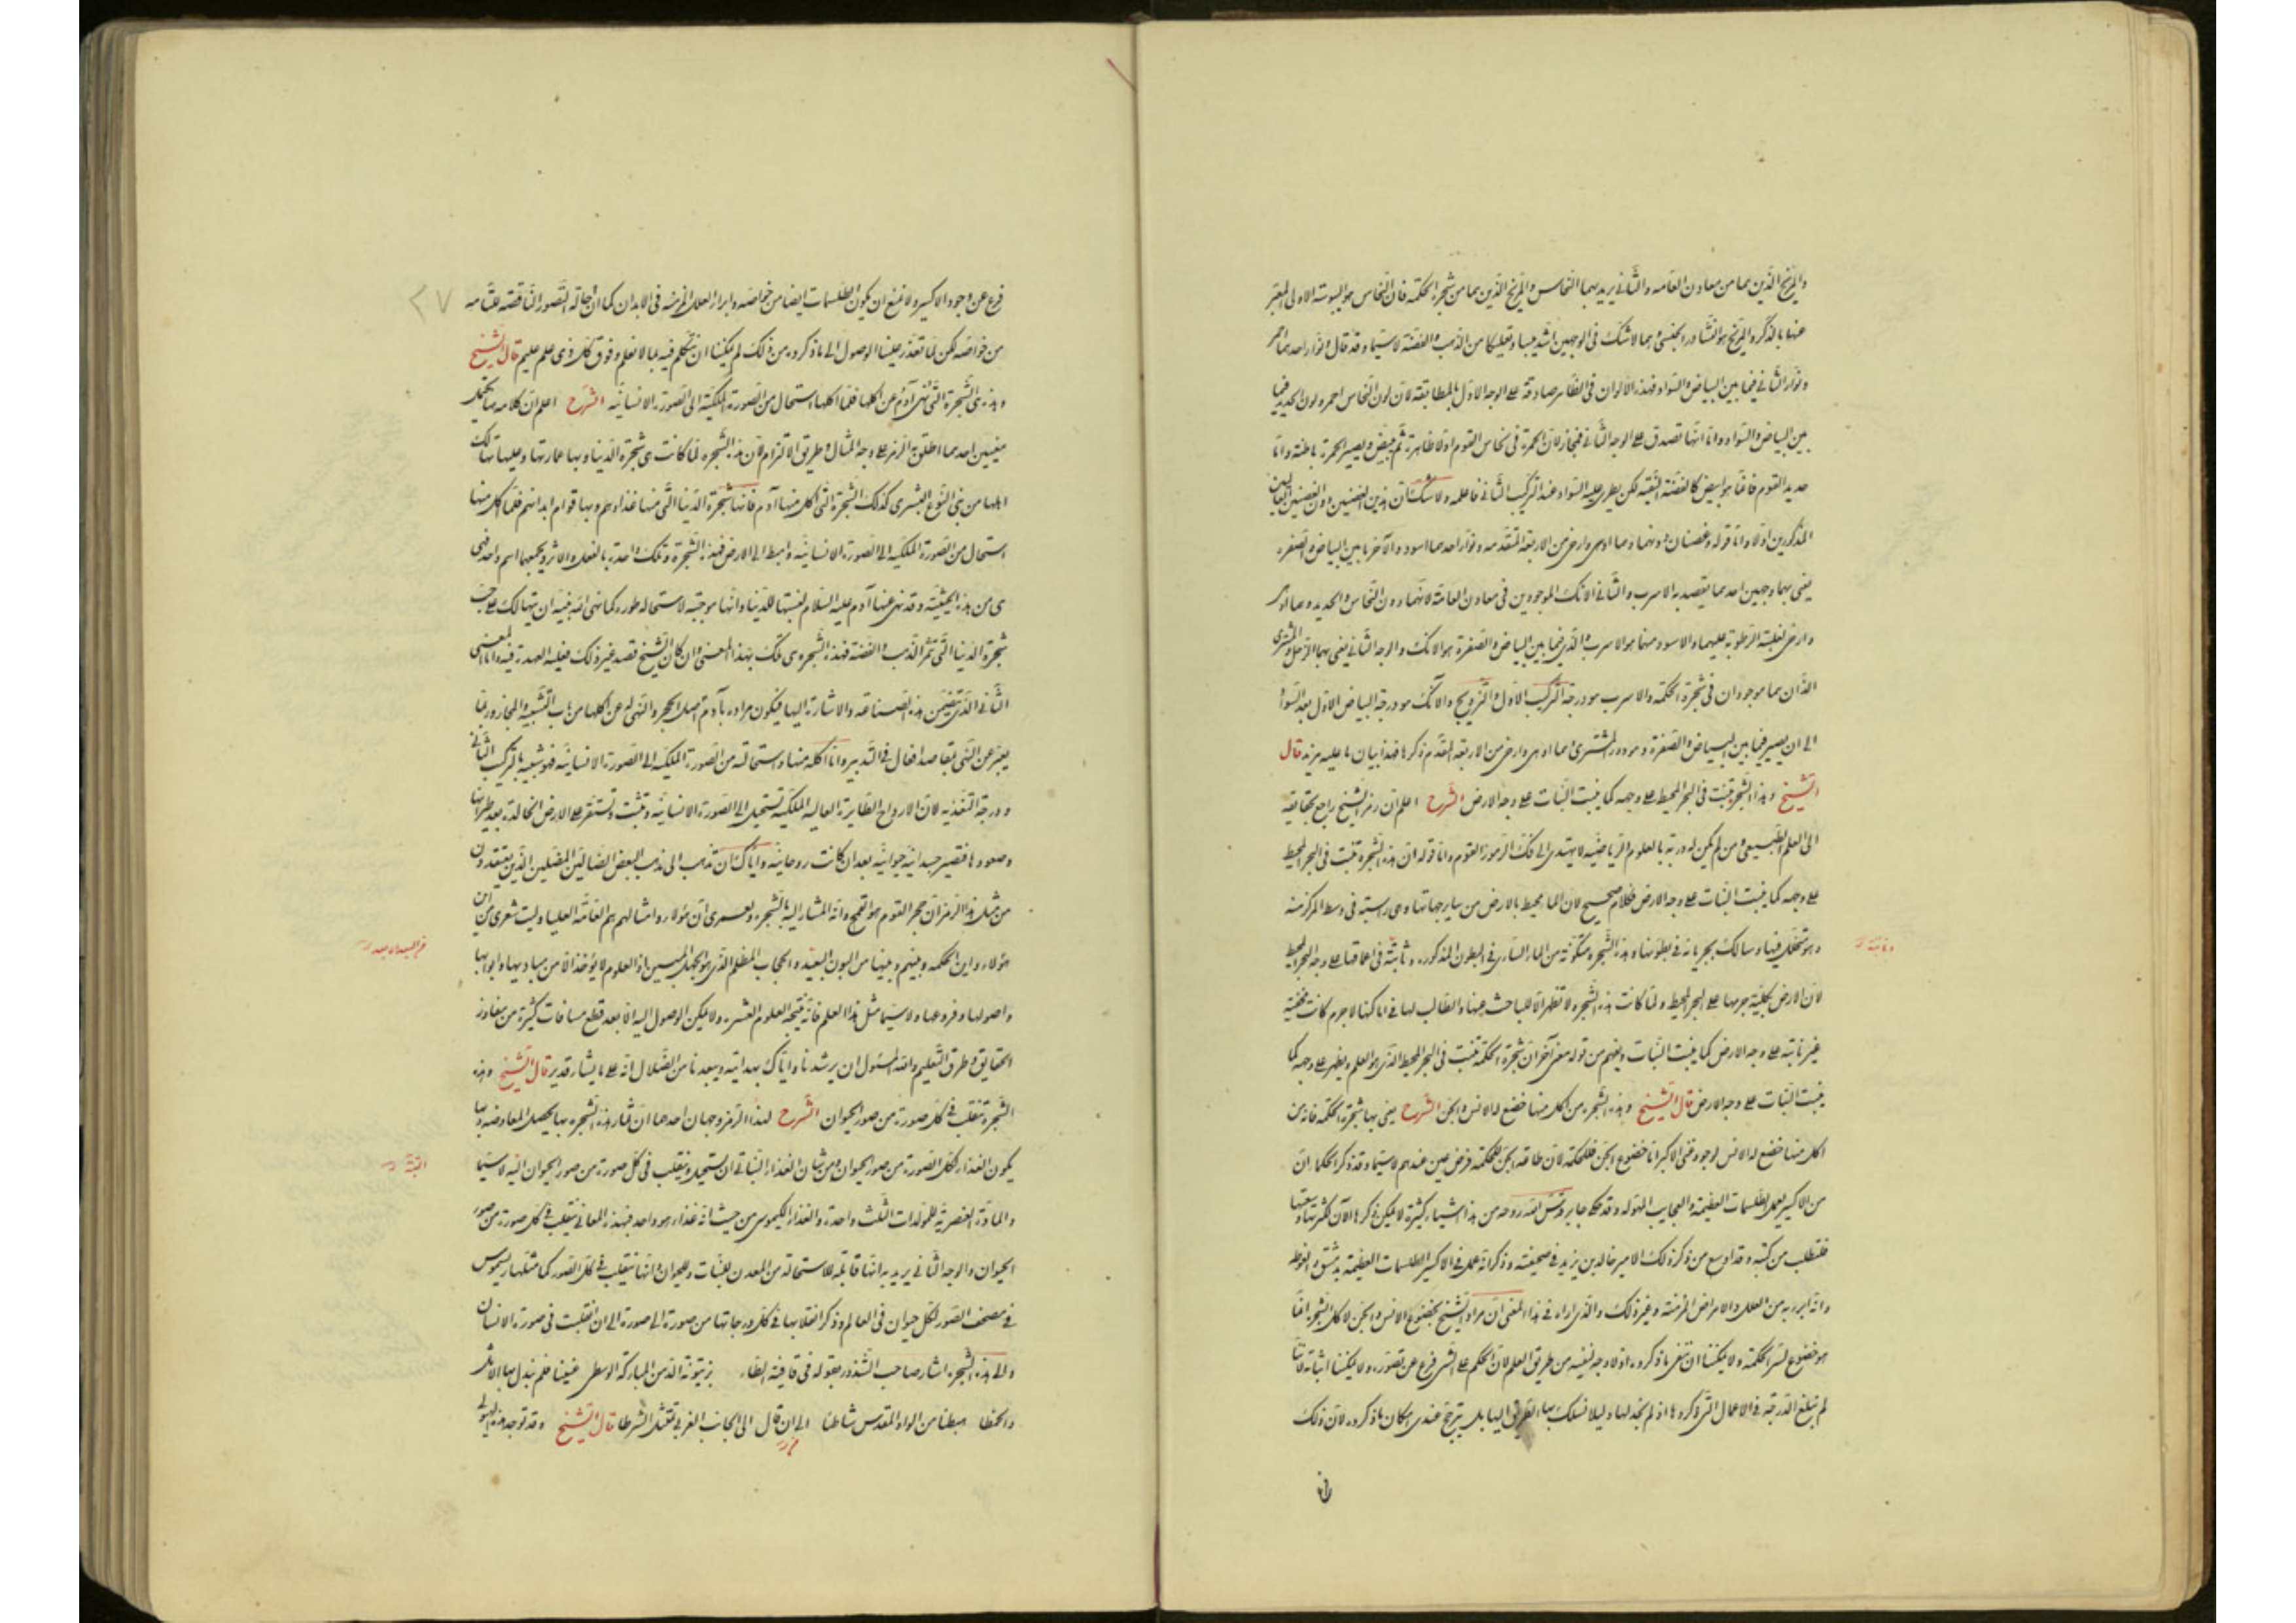 والمريخ الذين هما من معادن العامه والثاني يريد بهما النحاس والمريخ الذين هما من شجرة الحكمة فان النحاس هو اليبوسة الاولى المعبر
عنها بالذكر والمريخ هو النشادر الجنسى وهما لا شك في الوجهين اشد يبسا وتفليكا من الذهب والفضة لا سيما وقد قال ونوار احدهما احمر
ونوار الثاني فيما بين البياض والسواد فهذه الالوان في الظاهر صادقة على الوجه الاول بالمطابقة لان لون النحاس احمر ولون الحديد فيما
بين البياض والسواد واما انها تصدق على الوجه الثاني فمجاز لان الحمرة في نحاس القوم اولا ظاهرة ثم يبيض ويصير الحمرة باطنة واما
حديد القوم فانما هو ابيض كالفضة النقية لكن يطرى عليه السواد عند التركيب الثاني فاعلمه ولا شك ان هذين الغصنين دون الغصنين
المذكورين اولا واما قوله وغصنان دونهما وهما اوهى وارخى من الاربعة المتقدمه ونوار احدهما اسود والآخر ما بين البياض والصفره
يعنى بهما وجهين احدهما يقصد به الاسرب والثاني الانك الموجودين في معادن العامة لانهما دون النحاس والحديد وهما اوهى
وارخى لغلبة الرطوبة عليهما والاسود منهما هو الاسرب والذي فيما بين البياض والصفرة هو الانك والوجه الثاني يعنى بهما الزحل والمشترى
الذان هما موجودان في شجرة الحكمة والاسرب هو درجة التركيب الاول والتزويج والآنك هو درجة البياض الاول بعد السواد
الى ان يصير فيما بين البياض والصفرة وهو دور المشترى وهما اوهى وارخى من الاربعة المقدم ذكرها فهذا بيان ما عليه يزيد قال
الشيخ وهذه الشجرة تنبت في البحر المحيط على وجهه كما ينبت النبات على وجه الارض الشرح اعلم ان رمز الشيخ راجع بحقايقه
الى العلم الطبيعى ومن لم يكن له دربة بالعلوم الرياضيه لا يهتدى الى فك الرموز القوم واما قوله ان هذه الشجرة تنبت في البحر المحيط
على وجهه كما ينبت النبات على وجه الارض فكلام صحيح لان الماء محيط بالارض من ساير جهاتها وهى راسبة في وسط المركز منه
وهو متخلل فيها وسالك بجريانه في بطونها وهذه الشجره متكونة من الماء السارى في البطون المذكوره وثابتة في اعلاقها على وجه البحر المحيط
وثابتة
لان الارض بكليته جرمها على البحر المحيط ولما كانت هذه الشجره لا تظهر الا للباحث عنها والطالب لها في اماكنها لا جرم كانت مخفية
غير نابتة على وجه الارض كما ينبت النبات ويفهم من قوله معنى آخر ان شجرة الحكمة تنبت في البحر المحيط الذى هو العلم ويظهر على وجهه كما
ينبت النبات على وجه الارض قال الشيخ وهذه الشجرة من اكل منها خضع له الانس والجن الشرح يعنى بها شجرة الحكمه فانه من
اكل منها خضع له الانس لوجود غنى الاكبر واما خضوع الجن فللحكمة لان طاعة الجن للحكمة فرض عين عندهم لا سيما وقد ذكر الحكماء ان
من الاكسير يعمل الطلسمات العظيمة والعجايب المهوله وقد حكى جابر قدس الله روحه من هذا اشياء كثيرة لا يمكن ذكرها الآن لكثرتها وسعتها
فلتطلب من كتبه وقد اوسع من ذكر ذلك الامير خالد بن يزيد في صحيفته وذكر انه عمل في الاكسير الطلسمات العظيمة بدمشق والغوطه
وانه ابرى به من العلل والامراض المزمنة وغير ذلك والذى اراه في هذا المعنى ان مراد الشيخ بخضوع الانس والجن لا كل الشجرة انما
هو خضوع لسر الحكمة ولا يمكننا ان ننفى ما ذكروه اذ لا وجه لنفيه من طريق العلم لان الحكم على الشى فرع عن تصوره ولا يمكننا اثباته لاننا
لم نبلغ الدرجة في الاعمال التى ذكروها اذ لم نجد لها دليلا فنسلك بهذا الطريق اليها بل يترجح عندى امكان ما ذكروه لان ذلك
فرع عن وجود الاكسير ولا يمنع ان يكون الطلسمات ايضا من خواصه وابراء العلل المزمنة في الابدان كما ان احالة الصور الناقصة للتامه
٢٧
من خواصه لكن لما تعذر علينا الوصول الى ما ذكروه من ذلك لم يمكننا ان نتكلم فيه بما لا نعلم وفوق كل ذى علم عليم قال الشيخ
وهذه هى الشجرة التى نهى آدم عن اكلها فلما اكلها استحال من الصورة الملكية الى الصورة الانسانيه الشرح اعلم ان كلامه هنا يحتمل
معنيين احدهما اطلق به الرمز على وجه المثال وطريق الالتزام لان هذه الشجره لما كانت هى شجرة الدنيا وبها عمارتها وعليها تهالك
اهلها من بنى النوع البشرى كذلك الشجرة التى اكل منها آدم فانها شجرة الدنيا التى منها غذاؤهم وبها قوام ابدانهم فلما اكل منها
استحال من الصورة الملكيه الى الصورة الانسانيه واهبط الى الارض فهذه الشجرة وتلك واحدة بالفعل والاثر ويجمعها اسم واحد فهى
هى من هذه الحيثية وقد نهى عنها آدم عليه السلام لفتنتها للدنيا وانها موجبة لاستحاله طوره كما نهى الله نبيه ان يتهالك على حب
شجرة الدنيا التى تثمر الذهب والفضة فهذه الشجره هى تلك بهذا المعنى وان كان الشيخ قصد غير ذلك فعليه العهدة فيه واما المعنى
الثاني الذى يتضمن هذه الصناعه والاشارة اليها فيكون مراده بآدم اصل الحجر والنهى له عن اكلها من باب التشبيه والمجاز وربما
يعبر عن النهى بمقاصد افعال في التدبير واما اكله منها واستحالته من الصورة الملكيه الى الصورة الانسانيه فهو شبيه بالتركيب الثاني
ودرجة التغذيه لان الارواح الطايرة العاليه الملكية تستحيل الى الصورة الانسانيه وتثبت وتستقر على الارض الخالدة بعد طيرانها
وصعودها فتصير جسدانية حيوانيه بعد ان كانت روحانيه واياك ان تذهب الى مذهب البعض الضالين المضلين الذين يعتقدون
من مثل هذا الرمز ان حجر القوم هو القمح وانه المشار اليه بالشجره ولعمرى ان هؤلاء وامثالهم هم العامه العليا وليت شعرى من اين
هؤلاء واين الحكمه وبينهم وبينها من البون البعيد والحجاب المظلم الذى هو الجهل المبين اذ العلوم لا يؤخذ الا من مباديها وابوابها
واصولها وفروعها ولا سيما مثل هذا العلم فانه نتيجة العلوم العشره ولا يمكن الوصول اليه الا بعد قطع مسافات كثيرة من مفاوز
الحقايق وطرق التعليم والله المسئول ان يرشدنا واياك بهدايته ويبعدنا من الضلال انه على ما يشاء قدير قال الشيخ وهذه
الشجرة تنقلب في كل صورة من صور الحيوان الشرح لهذا الرمز وجهان احدهما ان ثمار هذه الشجره بها يحصل المعاوضه وبها
يكون الغذاء لكل الصورة من صور الحيوان ومن شان الغذاء النباتي ان يستحيل وينقلب في كل صورة من صور الحيوان اليه لا سيما
والمادة العنصرية للمولدات الثلث واحدة والغذاء الكيموس من حيث انه غذاء هو واحد فبهذه المعاني تنقلب في كل صورة من صور
الحيوان والوجه الثاني يريد به انها قابلة للاستحالة من المعدن للنبات وللحيوان وانها تنقلب في كل الصور كما مثلها ريسموس
في مصحف الصور لكل حيوان في العالم وذكر انقلابها في كل درجاتها من صورة الى صورة الى ان انقلبت في صورة الانسان
والى هذه الشجرة اشار صاحب الشذور بقوله في قافية الطاء بزيتونة الدهن المباركة الوسطى غنينا فلم نبدل بها الاثل
والخمطا هبطنا من الواد المقدس شاطئا الى ان قال الى الجانب الغربى نمتثل الشرطا قال الشيخ وقد توجد هذه الهيولى